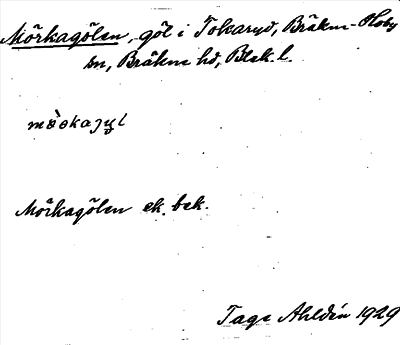 Mörkagölen, göl i Tokaryd, Bräkne-Hoby
sn, Bräkne hd, Blek. l.
Mörkagölen ek. bek.
Tage Ahldén 1929